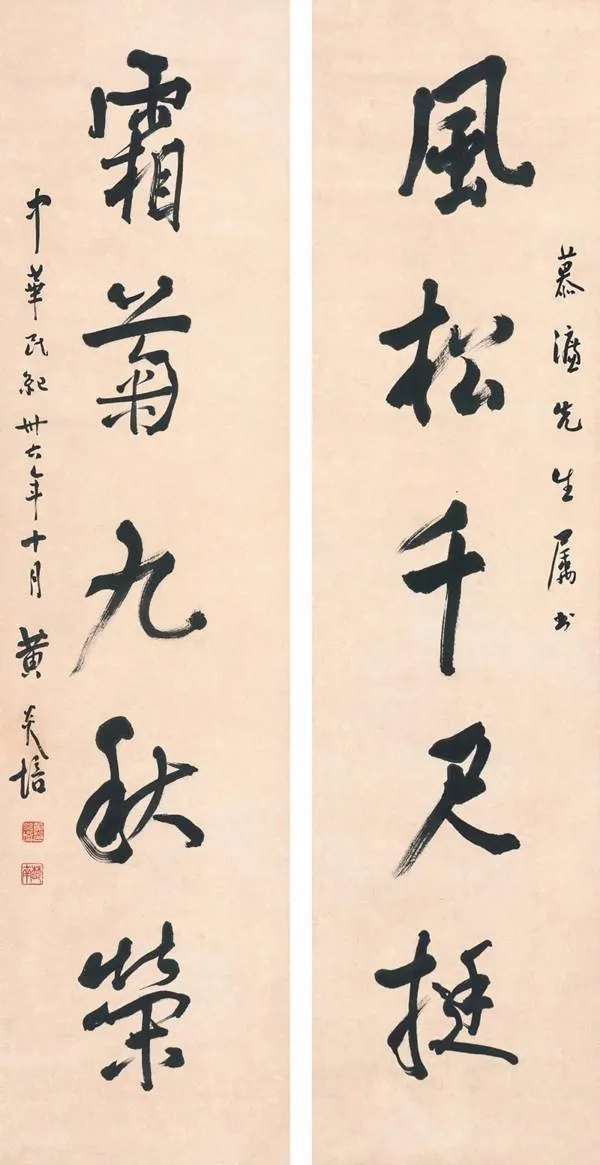 慕濂先生属书
風松千尺挺
霜菊九秋榮
中華民紀卅六年十月 黄炎培